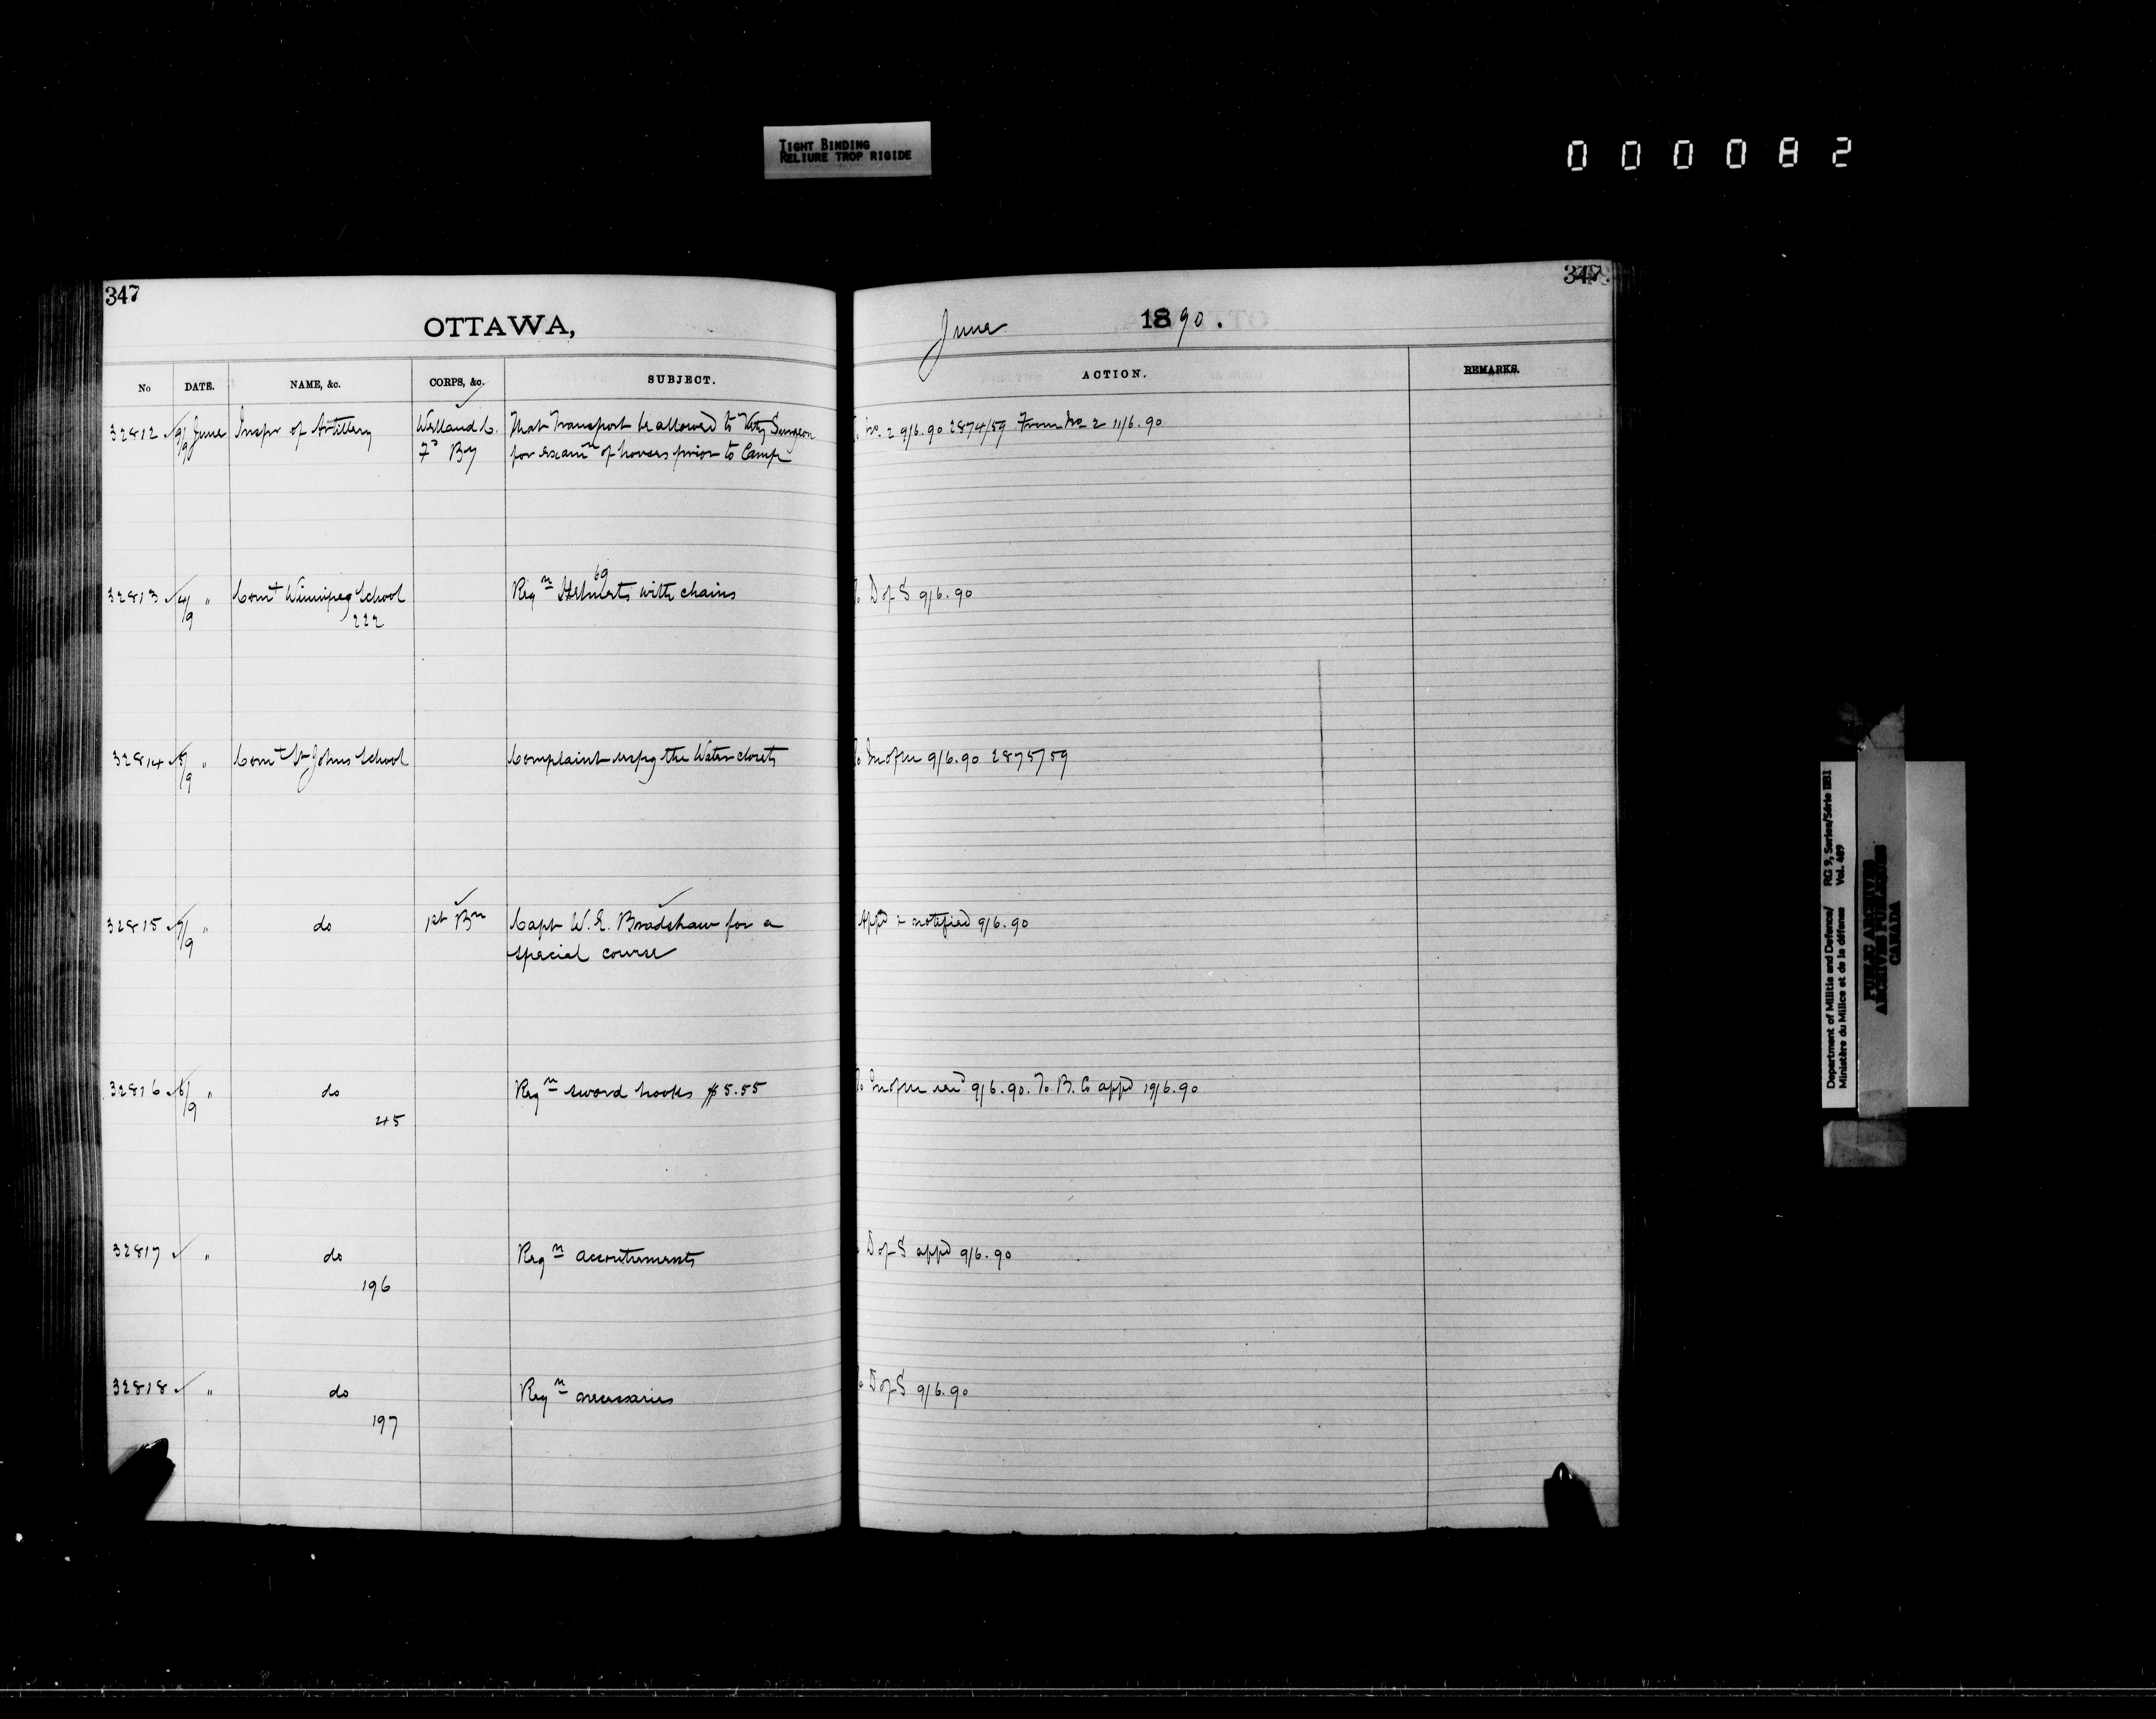 TIGHT BINDING
RELIURE TROP RIGIDE
000082
347
OTTAWA,
No DATE. NAME, &c. CORPS, &c. SUBJECT.
32812 9/9 June Inspr of Artillery Welland C. That Transport be allowed to Vety Surgeon
Fd By for examn of horses prior to Camp
32813 4/9 " Comt Winnipeg School Reqn 69 Helmets with chains
222
32814 5/9 " Comt St Johns School Complaint respg the Water closets
32815 7/9 " do 1st Bn Capt W. E. Bradshaw for a
special course
32816 6/9 " do Reqn sword hooks $5.55
45
32817 " do Reqn accoutrements
196
32818 " do Reqn necessaries
197
347
June 1890.
ACTION. REMARKS.
No. 2 9/6.90 2874/59 From No 2 11/6.90
D of S 9/6.90
M of M 9/6.90 2875/59
Appd & notified 9/6.90
9/6.90. To B.C. appd 19/6.90
D of S appd 9/6.90
D of S 9/6.90
Department of Militia and Defence/ RG 9, Series/Série IIB1
Ministère du Milice et de la défense Vol. 489
PUBLIC ARCHIVES
ARCHIVES PUBLIQUES
CANADA